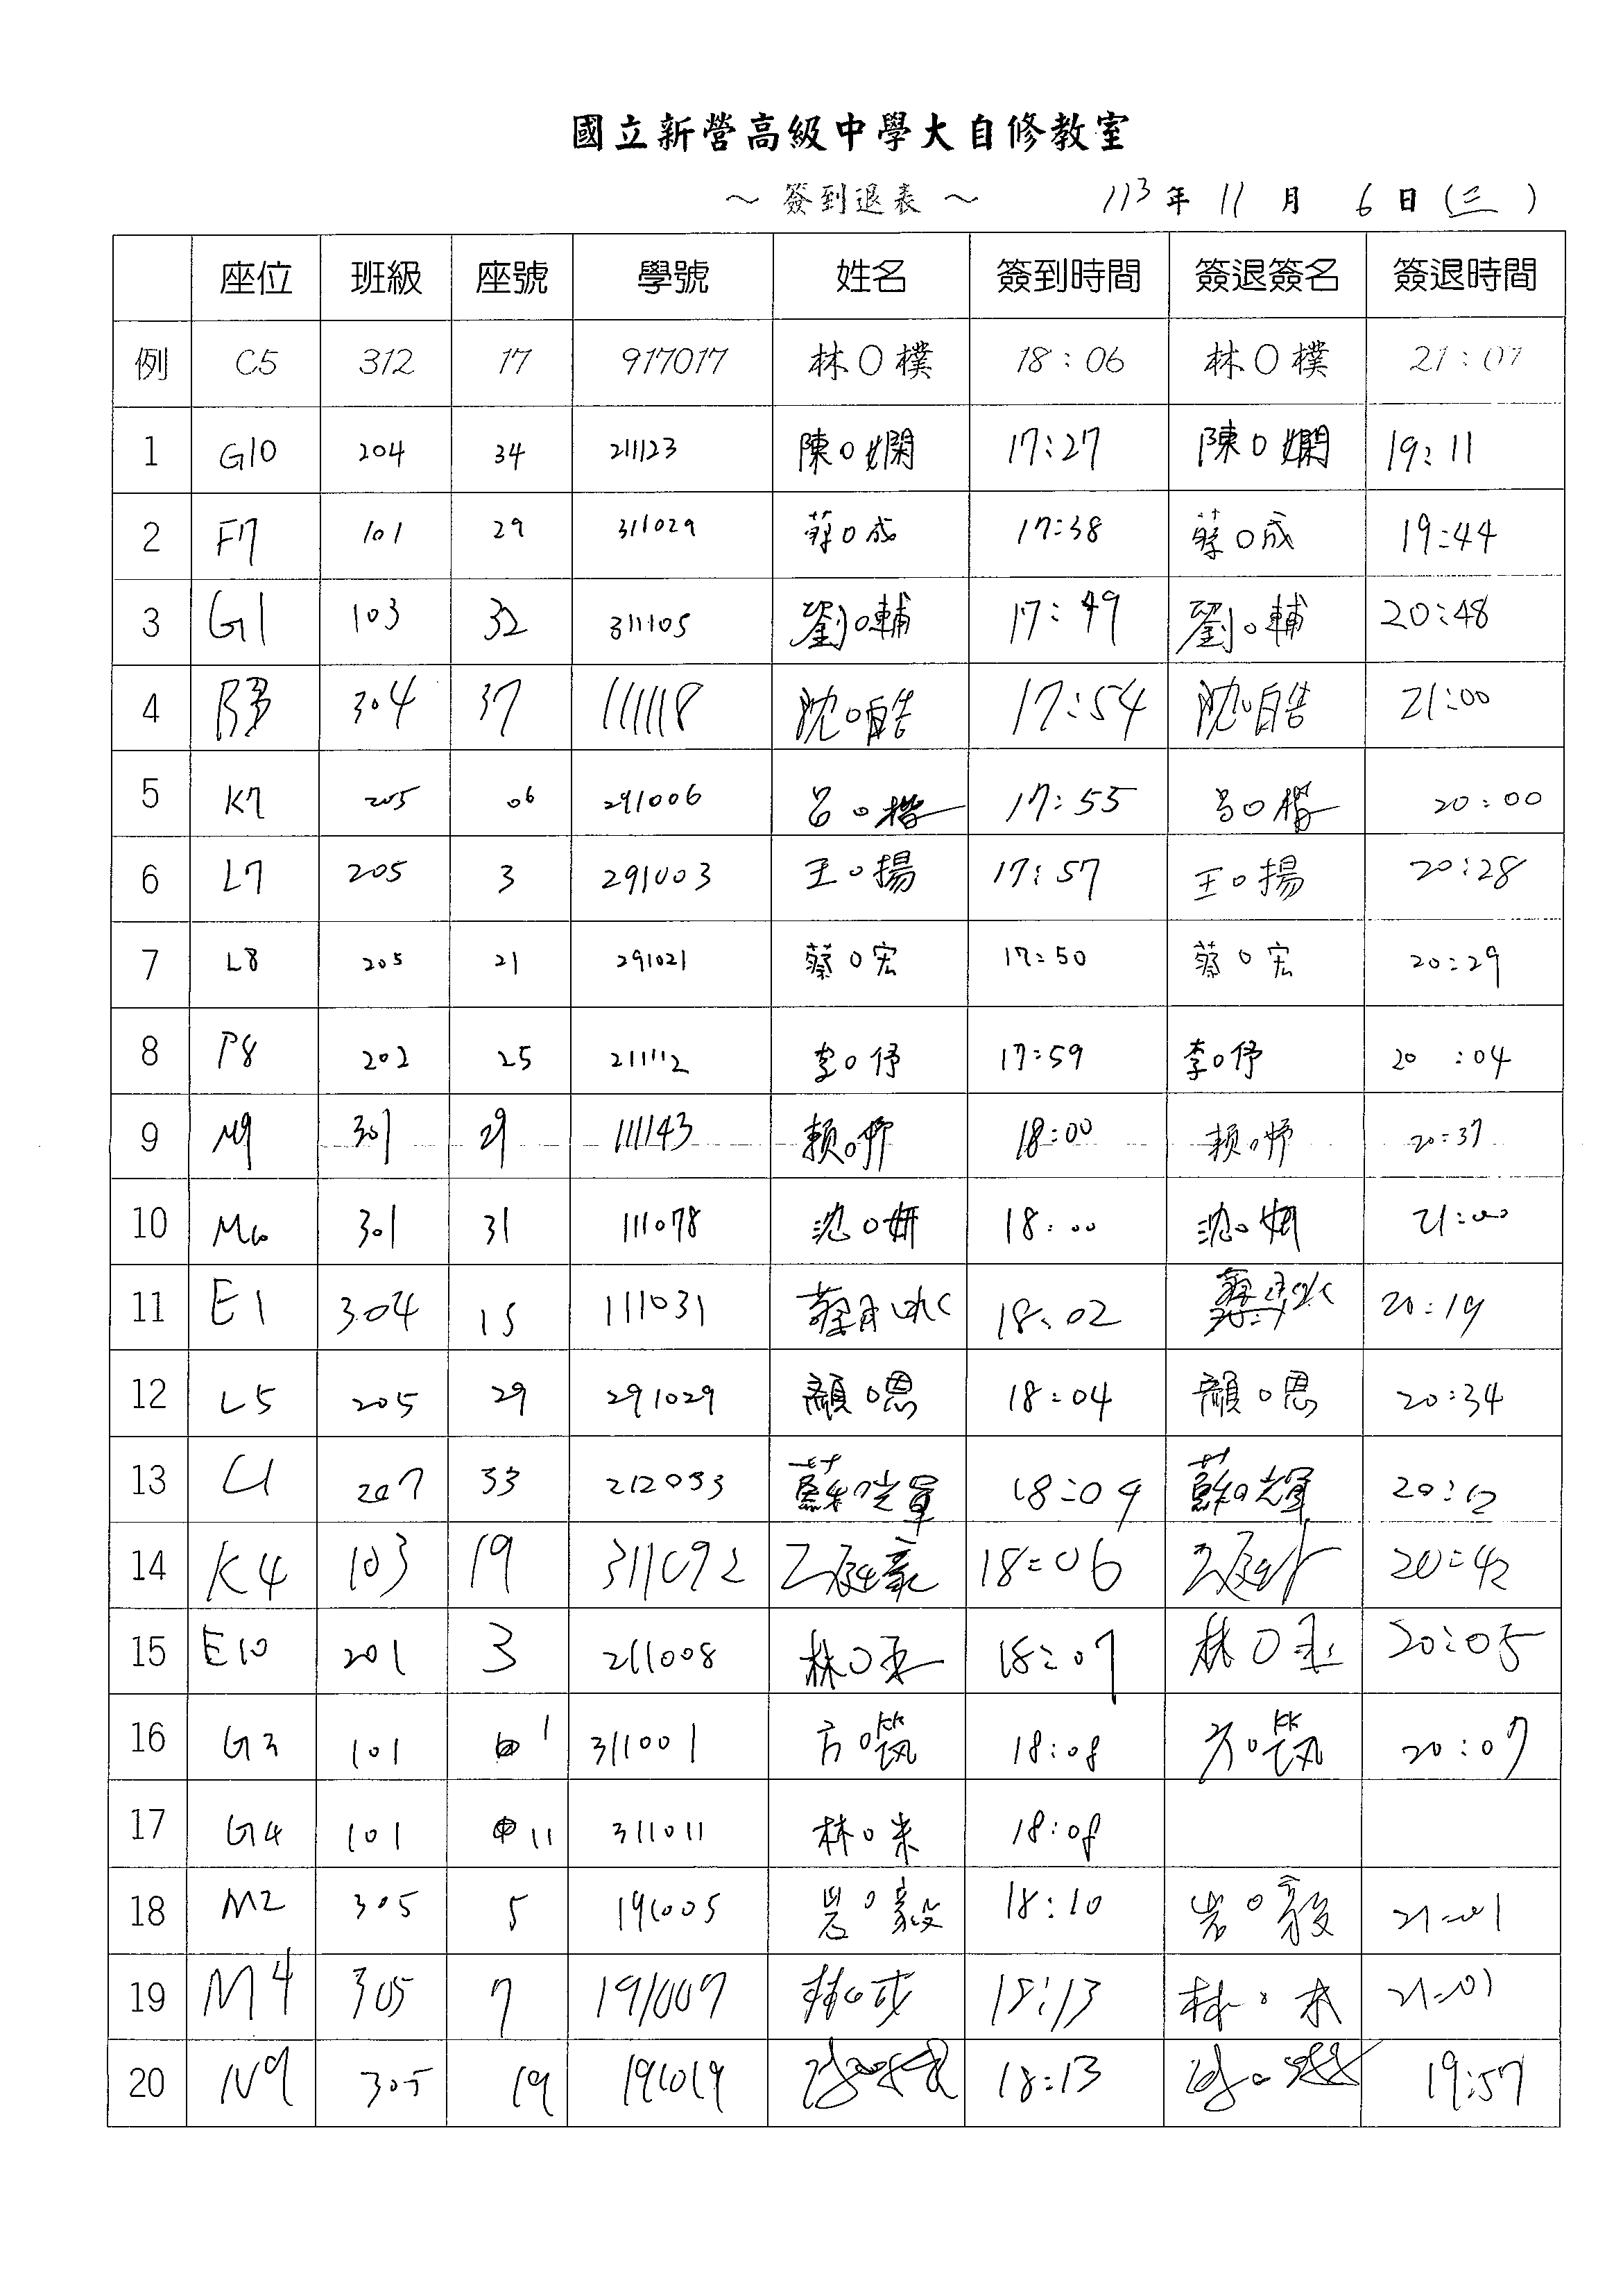 國立新營高級中學大自修教室
～ 簽到退表 ～ 113年 11 月 6 日 (三)
座位 班級 座號 學號 姓名 簽到時間 簽退簽名 簽退時間
例 C5 312 17 917017 林○樸 18:06 林○樸 21:07
1 G10 204 34 211123 陳○嫻 17:27 陳○嫻 19:11
2 F7 101 29 311029 蔡○成 17:38 蔡○成 19:44
3 G1 103 32 311105 劉○輔 17:49 劉○輔 20:48
4 304 37 111118 沈○皓 17:54 沈○皓 21:00
5 K7 205 06 291006 呂○楷 17:55 呂○楷 20:00
6 L7 205 3 291003 王○揚 17:57 王○揚 20:28
7 L8 205 21 291021 蔡○宏 17:50 蔡○宏 20:29
8 P8 202 25 211112 李○伃 17:59 李○伃 20:04
9 M9 301 29 111143 賴○妤 18:00 賴○妤 20:37
10 M10 301 31 111078 沈○妍 18:00 沈○妍 21:00
11 E1 304 15 111031 18:02 20:19
12 L5 205 29 291029 顏○恩 18:04 顏○恩 20:34
13 C1 207 33 212033 蘇○輝 18:04 蘇○輝 20:12
14 K4 103 19 311092 18:06 20:42
15 E10 201 3 211008 林○丞 18:07 林○丞 20:05
16 G3 101 1 311001 方○筑 18:08 方○筑 20:07
17 G4 101 11 311011 林○米 18:08
18 M2 305 5 191005 岩○毅 18:10 岩○毅 21:01
19 M4 305 7 191007 18:13 21:01
20 N9 305 19 191019 18:13 19:57